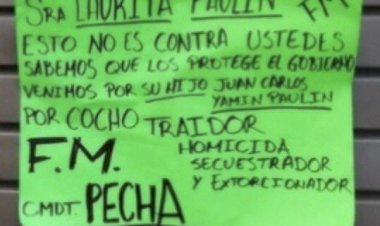 SRA LAURITA PAULIN
F.M.
ESTO NO ES CONTRA USTEDES
SABEMOS QUE LOS PROTEGE EL GOBIERNO
VENIMOS POR SU HIJO JUAN CARLOS
YAMIN PAULIN
POR COCHO TRAIDOR
F.M. HOMICIDA
SECUESTRADOR
Y EXTORCIONADOR
CMDT. PECHA